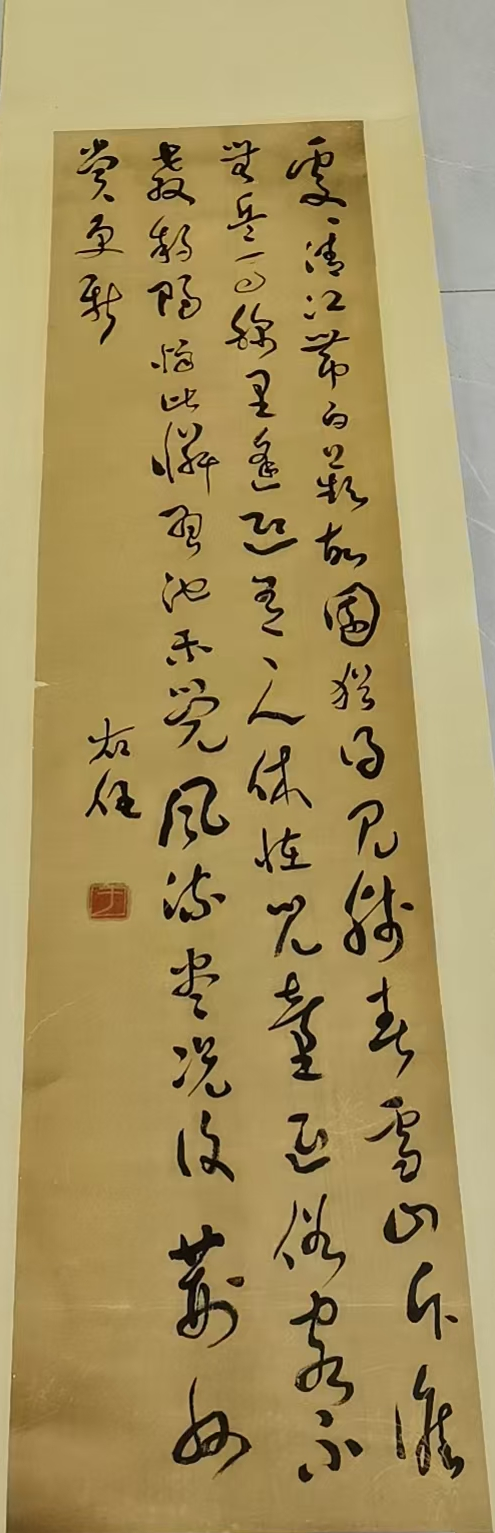 處〻清江帶白蘋故園猶得見殘春雪山斥候
無兵馬錦里逢迎有主人休怪兒童延俗客不
教鵝鴨惱比鄰習池未覺風流盡況復荊州
賞更新
右任